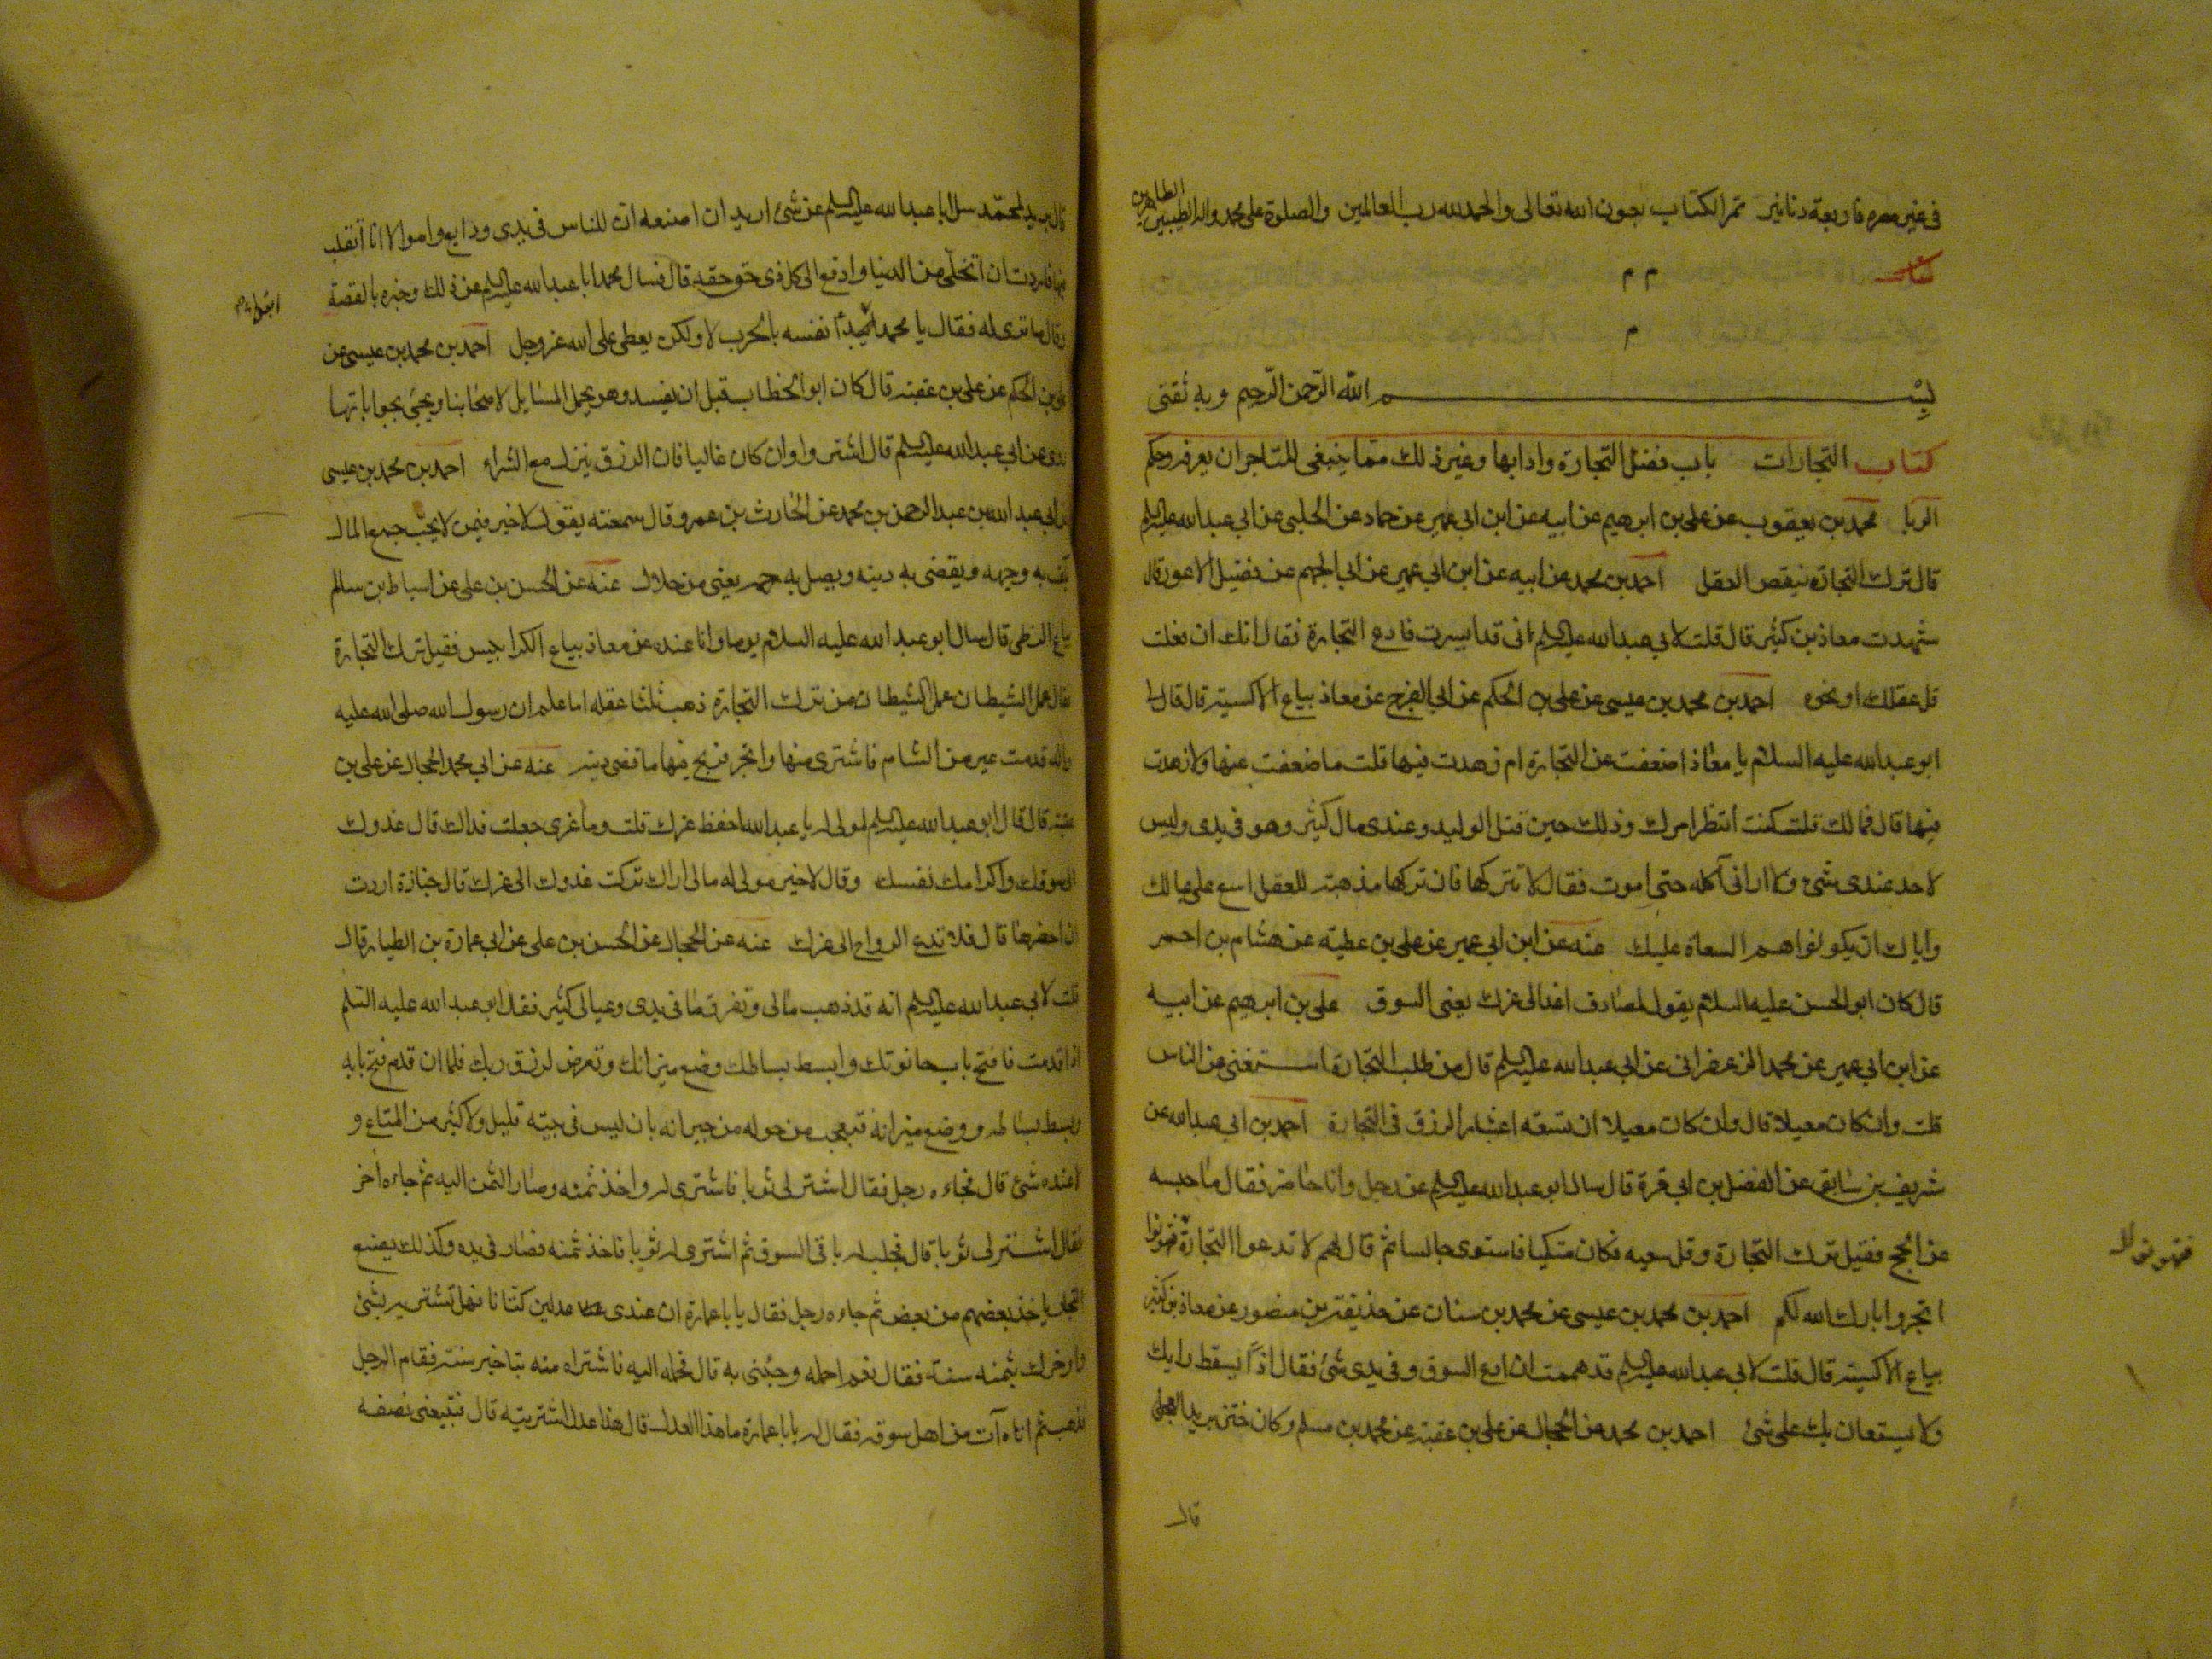 في غير مصره فاربعة دنانير تم الكتاب بعون الله تعالى والحمد لله رب العالمين والصلوة على محمد واله الطيبين الطاهرين
م م
م
بسم الله الرحمن الرحيم وبه ثقتى
كتاب التجارات باب فضل التجارة وادابها وغير ذلك مما ينبغى للتاجر ان يعرفه وحكم
الربا محمد بن يعقوب عن على بن ابرهيم عن ابيه عن ابن ابي عمير عن حماد عن الحلبى عن ابي عبد الله عليه السلم
قال ترك التجارة ينقص العقل احمد بن محمد عن ابيه عن ابن ابي عمير عن ابي الجهم عن فضيل الاعور قال
شهدت معاذ بن كثير قال قلت لابي عبد الله عليه السلم انى قد ايسرت فادع التجارة فقال انك ان فعلت
قل عقلك او نحوه احمد بن محمد بن عيسى عن على بن الحكم عن ابي الفرج عن معاذ بياع الاكسية قال قال لى
ابو عبد الله عليه السلام يا معاذ اضعفت عن التجارة ام زهدت فيها قلت ما ضعفت عنها ولا زهدت
فيها قال فمالك قلت كنت أنتظر امرك وذلك حين قتل الوليد وعندى مال كثير وهو فى يدى وليس
لاحد عندى شئ ولا ارانى آكله حتى اموت فقال لا تتركها فان تركها مذهبة للعقل اسع على عيالك
واياك ان يكونوا هم السعاة عليك عنه عن ابن ابي عمير عن على بن عطية عن هشام بن احمر
قال كان ابو الحسن عليه السلام يقول لمصادف اغد الى عزك يعنى السوق على بن ابرهيم عن ابيه
عن ابن ابي عمير عن محمد الزعفرانى عن ابي عبد الله عليه السلم قال من طلب التجارة استغنى من الناس
قلت وان كان معيلا قال وان كان معيلا ان تسعه اعشار الرزق فى التجارة احمد بن ابي عبد الله عن
شريف بن سابق عن الفضل بن ابي قرة قال سال ابو عبد الله عليه السلم عن رجل وانا حاضر فقال ما حبسه
عن الحج فقيل ترك التجارة وقل سعيه فكان متكيا فاستوى جالسا ثم قال لهم لا تدعوا التجارة فتهونوا
فتهونوا
اتجروا بارك الله لكم احمد بن محمد بن عيسى عن محمد بن سنان عن حذيفة بن منصور عن معاذ بن كثير
بياع الاكسية قال قلت لابي عبد الله عليه السلم قد هممت ان ادع السوق وفى يدى شئ فقال اذاً يسقط رايك
ولا يستعان بك على شئ احمد بن محمد عن الحجال عن على بن عقبة عن محمد بن مسلم وكان ختن بريد العجلى
قال
قال بريد لمحمد سل ابا عبد الله عليه السلم عن شئ اريد ان اصنعه ان للناس فى يدى ودايع واموالا انا اتقلب
فيها فاردت ان اتخلى من الدنيا وادفع الى كل ذى حق حقه قال فسال محمد ابا عبد الله عليه السلم عن ذلك وخبره بالقصة
وقال ما ترى له فقال يا محمد أيبدأ نفسه بالحرب لا ولكن يعطى على الله عز وجل احمد بن محمد بن عيسى عن
على بن الحكم عن على بن عقبة قال كان ابو الخطاب قبل ان يفسد وهو يحمل المسايل لاصحابنا ويجيئ بجواباتها
روى عن ابي عبد الله عليه السلم قال اشتروا وان كان غاليا فان الرزق ينزل مع الشراء احمد بن محمد بن عيسى
عن ابي عبد الله عن عبد الرحمن بن محمد عن الحارث بن عمرو قال سمعته يقول لا خير فيمن لا يحب جمع المال
يكف به وجهه ويقضى به دينه ويصل به رحمه يعنى من حلال عنه عن الحسن بن على عن اسباط بن سالم
بياع الزطى قال سال ابو عبد الله عليه السلام يوما وانا عنده عن معاذ بياع الكرابيس فقيل ترك التجارة
فقال عمل الشيطان عمل الشيطان من ترك التجارة ذهب ثلثا عقله اما علم ان رسول الله صلى الله عليه
واله قدمت عير من الشام فاشترى منها واتجر فربح فيها ما قضى دينه عنه عن ابي محمد الحجال عن على بن
عقبة قال قال ابو عبد الله عليه السلم لمولى له يا عبد الله احفظ عزك قلت وما عزى جعلت فداك قال غدوك
الى سوقك واكرامك نفسك وقال لاخر مولى له مالى اراك تركت غدوك الى عزك قال جنازة اردت
ان احضرها قال فلا تدع الرواح الى عزك عنه عن الحجال عن الحسن بن على عن ابي عمارة بن الطيار قال
قلت لابي عبد الله عليه السلم انه قد ذهب مالى وتفرق ما فى يدى وعيالى كثير فقال ابو عبد الله عليه السلم
اذا قدمت فافتح باب حانوتك وابسط بساطك وضع ميزانك وتعرض لرزق ربك فلما ان قدم فتح بابه
وبسط بساطه ووضع ميزانه فتعجب من حوله من جيرانه بان ليس فى بيته قليل ولا كثير من المتاع و
لا عنده شئ قال فجاءه رجل فقال اشتر لى ثوبا فاشترى له واخذ ثمنه وصار الثمن اليه ثم جاءه اخر
فقال اشتر لى ثوبا قال فجلب له باقى السوق ثم اشترى له ثوبا فاخذ ثمنه فصار فى يده وكذلك يصنع
التجار ياخذ بعضهم من بعض ثم جاءه رجل فقال يا با عمارة ان عندى عدلين كتانا فهل تشتريه بشئ
واوخرك بثمنه سنة فقال نعم احمله وجئنى به قال فحمله اليه فاشتراه منه بتاخير سنة فقام الرجل
فذهب ثم اتاه آت من اهل سوقه فقال له يا با عمارة ما هذا العدل قال هذا عدل اشتريته قال فتبيعنى نصفه